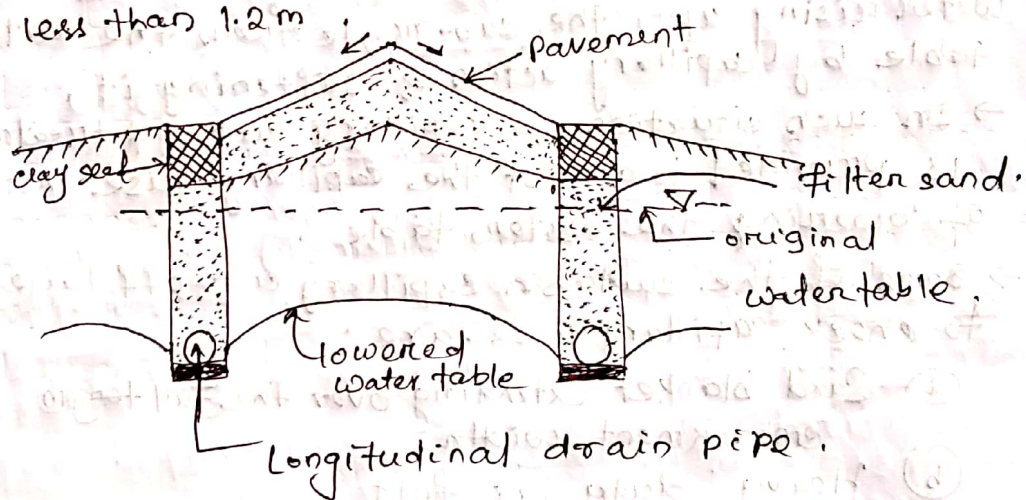 less than 1.2 m
pavement
clay seal
filter sand.
original
water table.
lowered
water table
Longitudinal drain pipe.